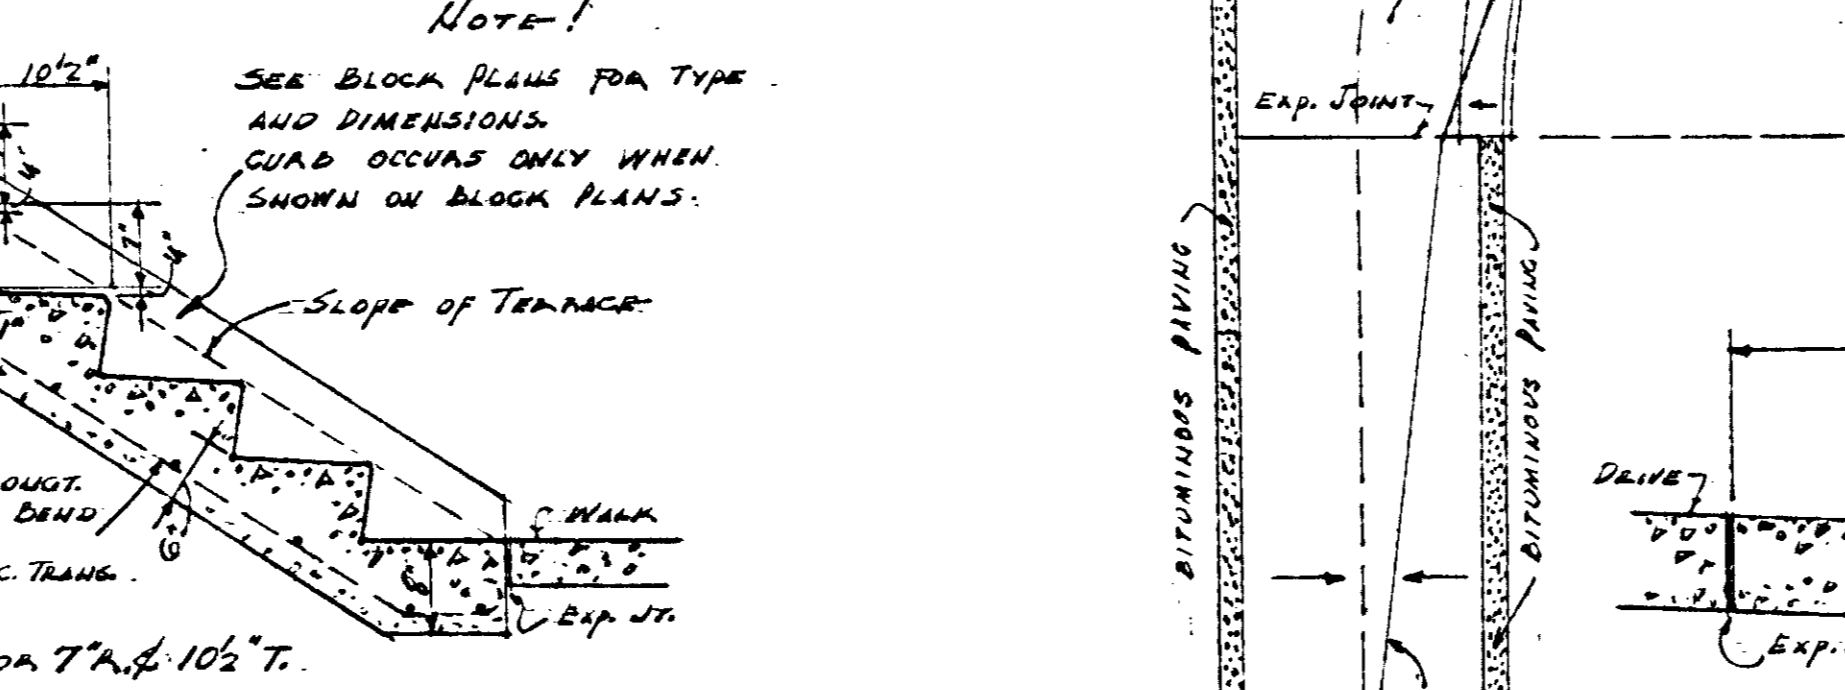 NOTE!
SEE BLOCK PLANS FOR TYPE
AND DIMENSIONS.
CURB OCCURS ONLY WHEN
SHOWN ON BLOCK PLANS.
10½"
7"
SLOPE OF TERRACE
BEND
6"
WALK
8"
EXP. JT.
C. TRANS.
OR 7"R. & 10½"T.
EXP. JOINT
BITUMINOUS PAVING
BITUMINOUS PAVING
DRIVE
EXP.